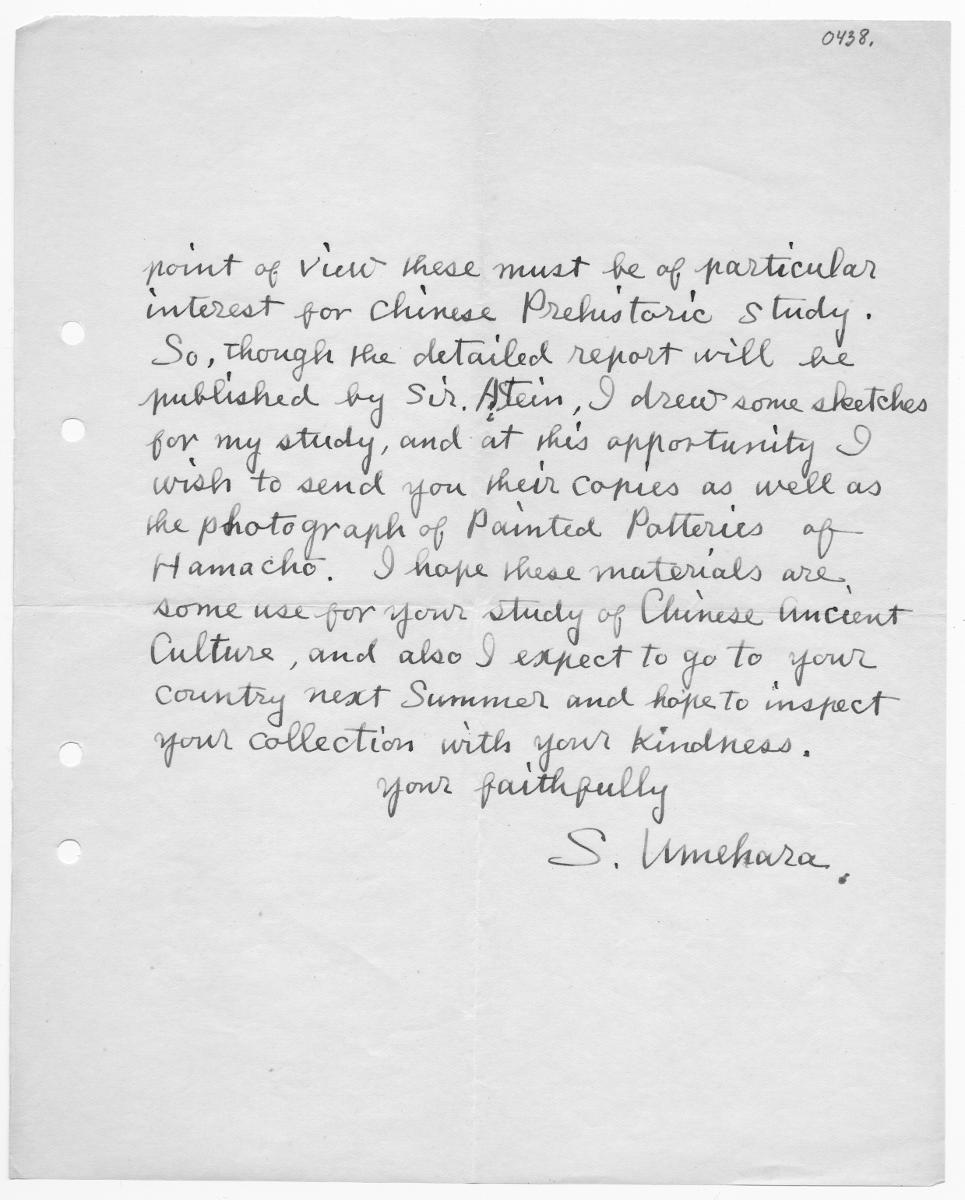 0438.
point of view these must be of particular
interest for chinese Prehistoric study.
So, though the detailed report will be
published by Sir. A. Stein, I drew some sketches
for my study, and at this opportunity I
wish to send you their copies as well as
the photograph of Painted Potteries of
Hamacho. I hope these materials are
some use for your study of Chinese Ancient
Culture, and also I expect to go to your
country next Summer and hope to inspect
your collection with your kindness.
your faithfully
S. Umehara.